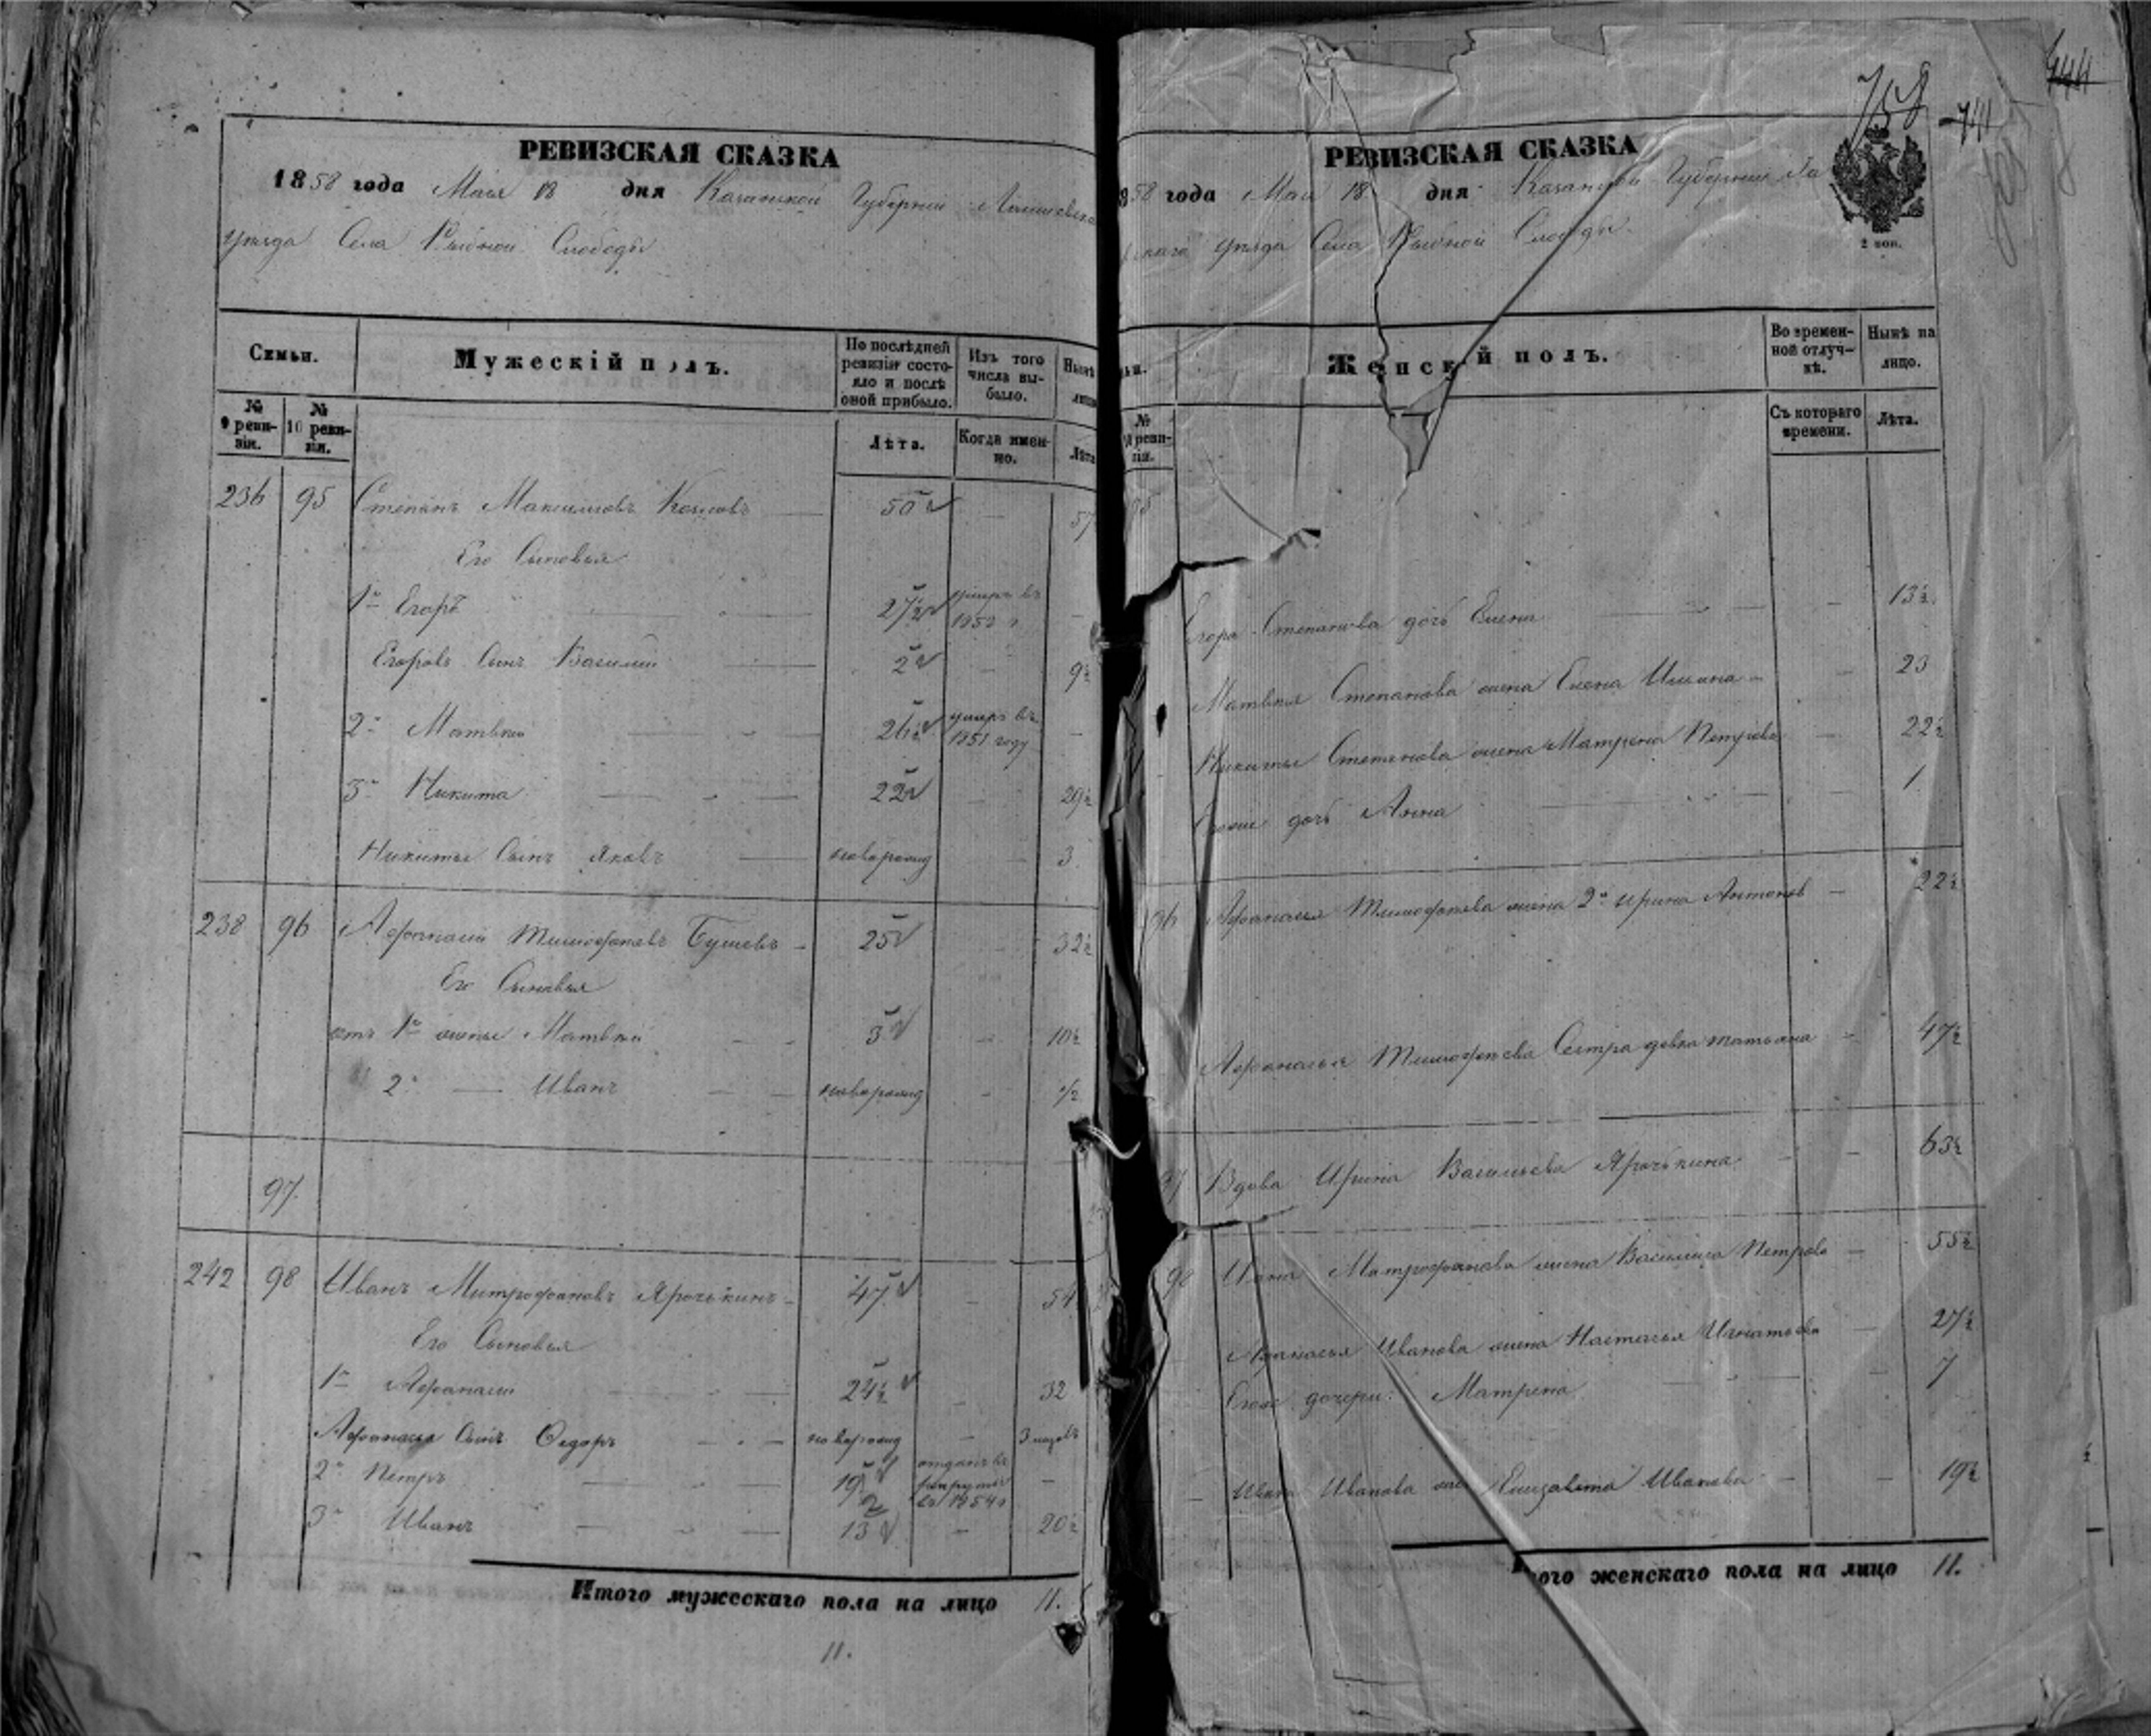 РЕВИЗСКАЯ СКАЗКА
1858 года Маія 18 дня Казанской Губерніи Лаишевска
уѣзда Села Рыбной Слободы
Семьи.
Мужескій полъ.
По послѣдней ревизіи состояло и послѣ оной прибыло.
Изъ того числа выбыло.
Нынѣ
№ 9 ревизіи.
№ 10 ревизіи.
Лѣта.
Когда именно.
Лѣта
236 95 Степанъ Максимовъ 50 — 57
Его Сыновья
1й Егоръ 27½ умеръ въ 185
Егоровъ Сынъ Василий 2 — 9½
2й Матвѣй 26½ умеръ въ 1851 году —
3й Никита 22 — 29½
Никиты Сынъ Яковъ новорожд — 3
238 96 Афанасій Тимофѣевъ Бушевъ — 25 — 32½
Его Сыновья
отъ 1й жены Матвѣй 3 — 10½
2й — Иванъ новорожд — ½
97
242 98 Иванъ Митрофановъ Ярочкинъ — 47 — 54
Его Сыновья
1й Афанасій 24½ — 32
Афанасья Сынъ Федоръ новорожд — 3 мѣсяц
2й Петръ 19½ отданъ въ рекруты въ 1854 —
3й Иванъ 13 — 20½
Итого мужескаго пола на лицо 11.
11.
758
РЕВИЗСКАЯ СКАЗКА
58 года Маи 18 дня Казанской Губерніи Ла
скаго уѣзда Села Рыбной Слободы
2 коп.
Женскій полъ.
Во временной отлучкѣ.
Нынѣ на лицо.
№ ревизіи.
Съ котораго времени.
Лѣта.
95
Егора Степанова дочь Елена — 13½
Матвѣя Степанова жена Елена — 23
Никиты Степанова жена Матрена Петрова — 22½
Его же дочь Анна — 1
96 Афанасья Тимофѣева жена 2я Ирина Антонов — 22½
Афанасья Тимофѣева Сестра девка Татьяна — 47½
97 Вдова Ирина Васильева Ярочкина — 63½
98 Ивана Митрофанова жена Василиса Петрова — 55½
Афанасья Иванова жена Настасья Игнатьева — 27½
Егоже дочери: Матрена — 7
Ивана Иванова жена Елизавета Иванова — 19½
ого женскаго пола на лицо 11.